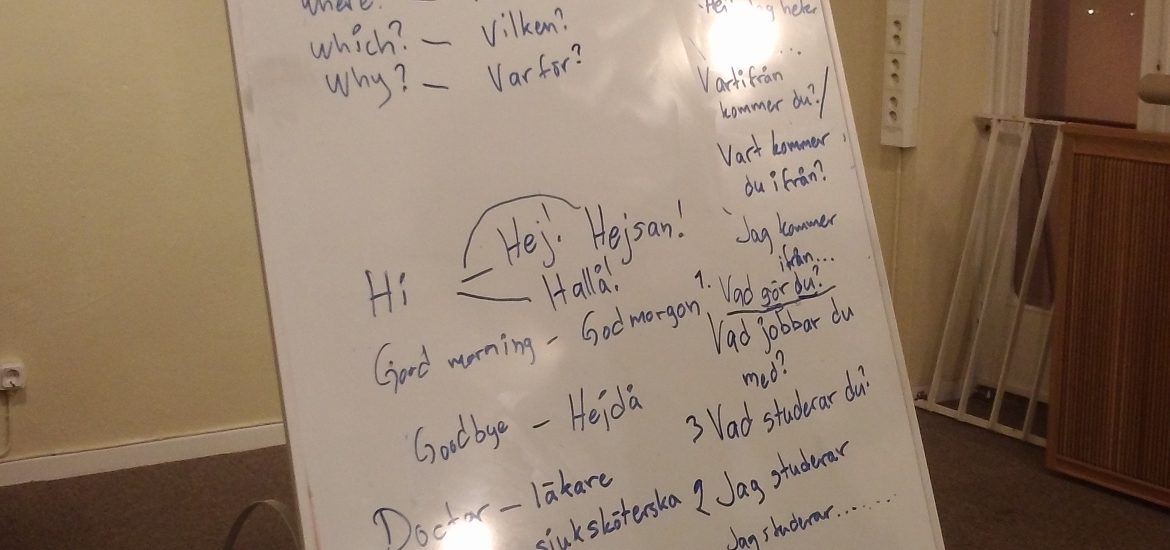 where? —
which? — Vilken?
Why? — Varför?
Hi
Hej! Hejsan!
Hallå!
Good morning - Godmorgon
Goodbye — Hejdå
Doctor — läkare
sjuksköterska
Hej jag heter
....
Vartifrån
kommer du?/
Vart kommer
du ifrån?
Jag kommer
ifrån...
1. Vad gör du?
Vad jobbar du
med?
3 Vad studerar du?
2 Jag studerar
Jag studerar........